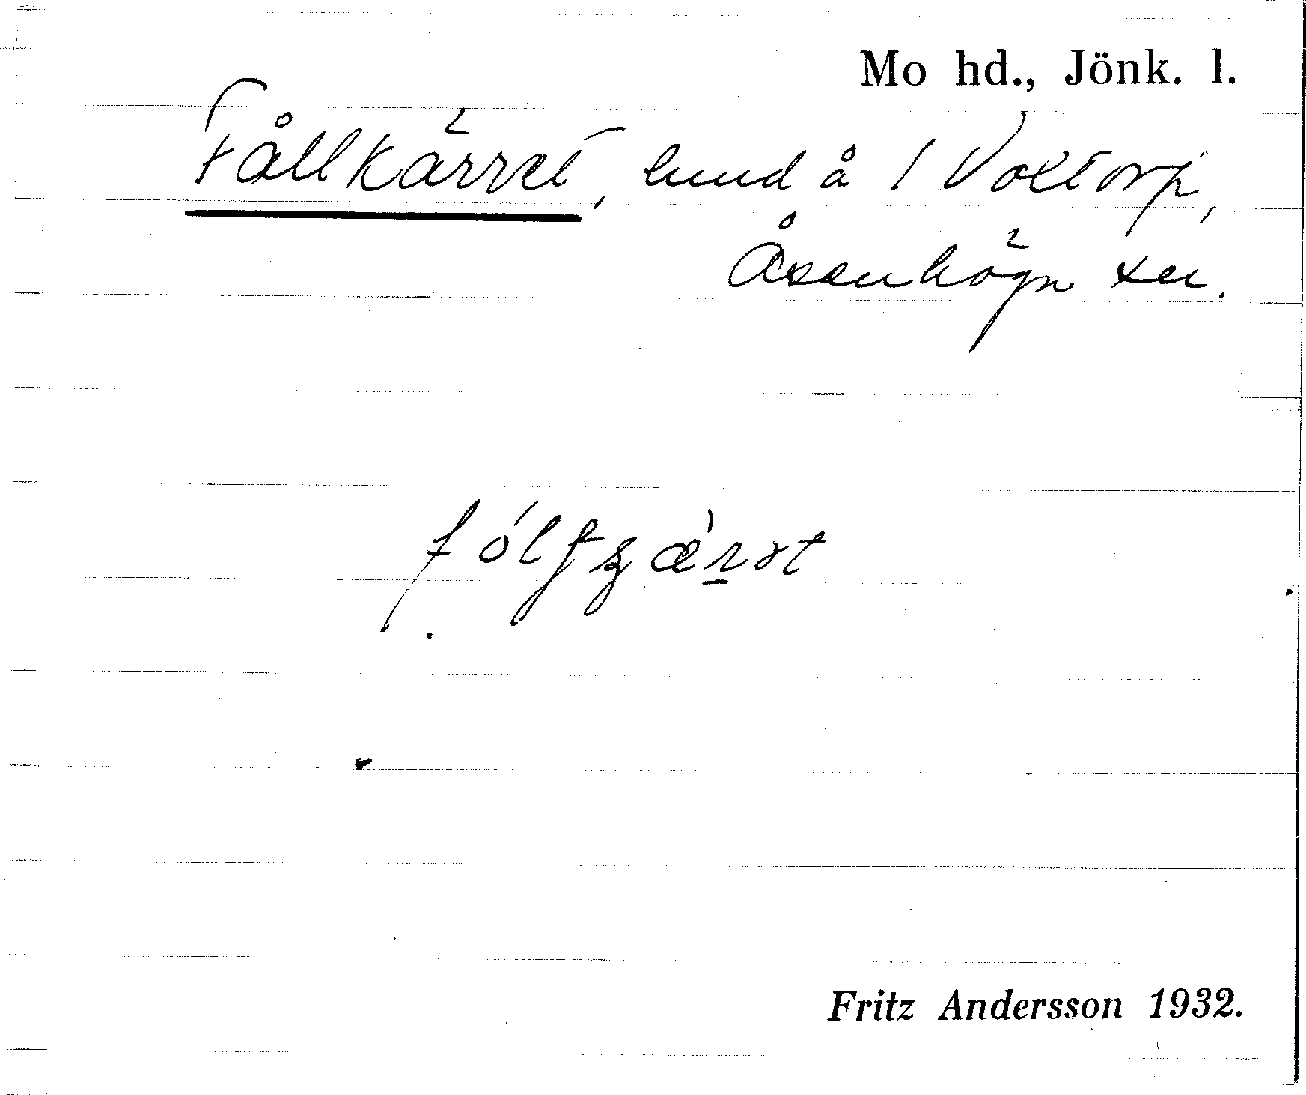 Mo hd., Jönk. l.
Fållkärret, lund å 1 Voxtorp,
Åsenhöga sn.
Fritz Andersson 1932.